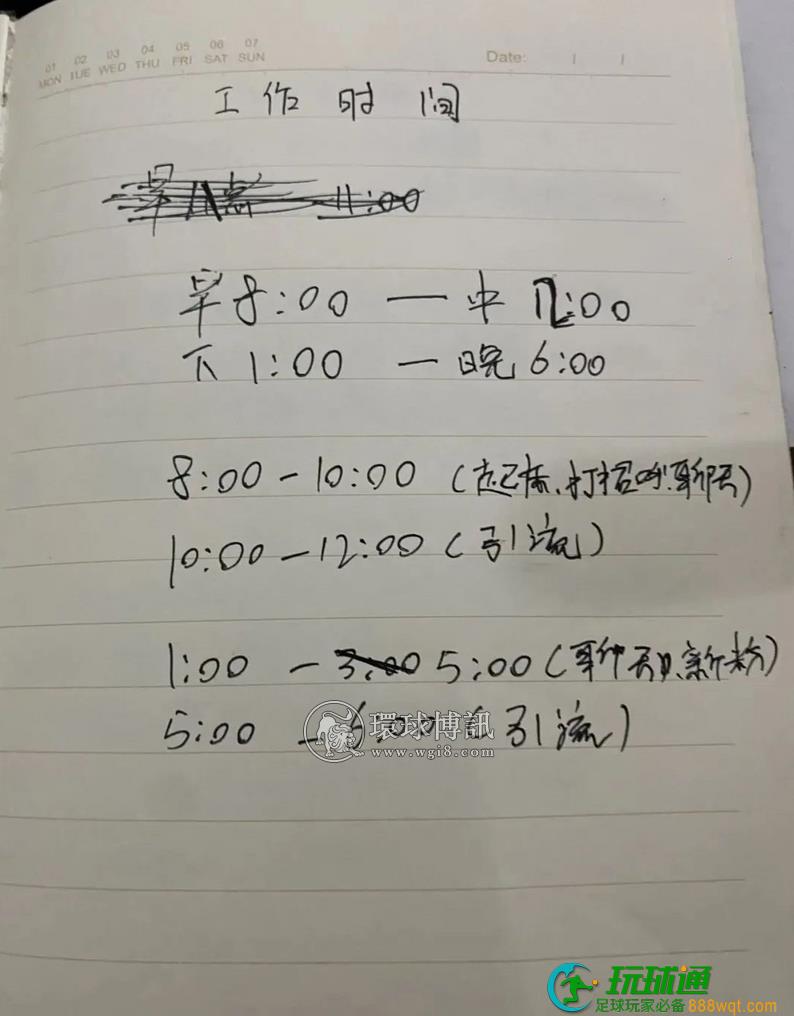 01 02 03 04 05 06 07
MON TUE WED THU FRI SAT SUN
Date: / /
工作时间
11:00
早8:00 — 中12:00
下1:00 — 晚6:00
8:00 - 10:00 (起床、打招呼、聊天)
10:00 - 12:00 (引流)
1:00 - 3:00 5:00 (聊天、新粉)
5:00 - 6:00 (引流)
環球博訊
www.wgi8.com
玩球通
足球玩家必备888wqt.com